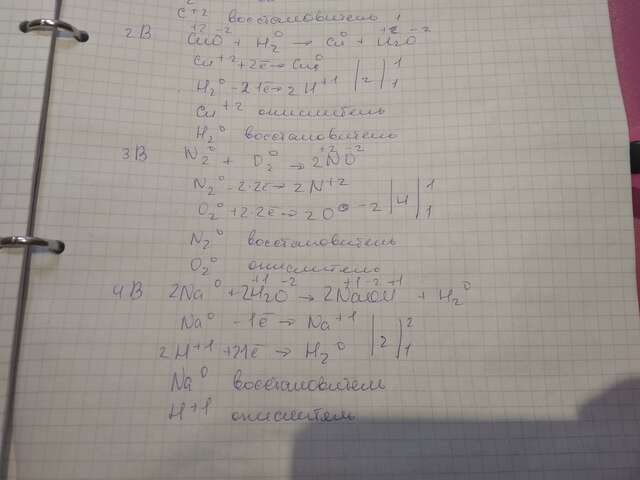 C+2 восстановитель
2В +2 -2 0 0 +1 -2
CuO + H₂ → Cu + H₂O
Cu+2 +2ē → Cu0 | | 1
H₂0 - 2·1ē → 2H+1 | 2 | 1
Cu+2 окислитель
H₂0 восстановитель
3В N₂0 + O₂0 → 2N+2O-2
N₂0 - 2·2ē → 2N+2 | | 1
O₂0 + 2·2ē → 2O-2 | 4 | 1
N₂0 восстановитель
O₂0 окислитель
4В 2Na0 + 2H₂+1O-2 → 2Na+1O-2H+1 + H₂0
Na0 - 1ē → Na+1 | | 2
2H+1 + 2·1ē → H₂0 | 2 | 1
Na0 восстановитель
H+1 окислитель